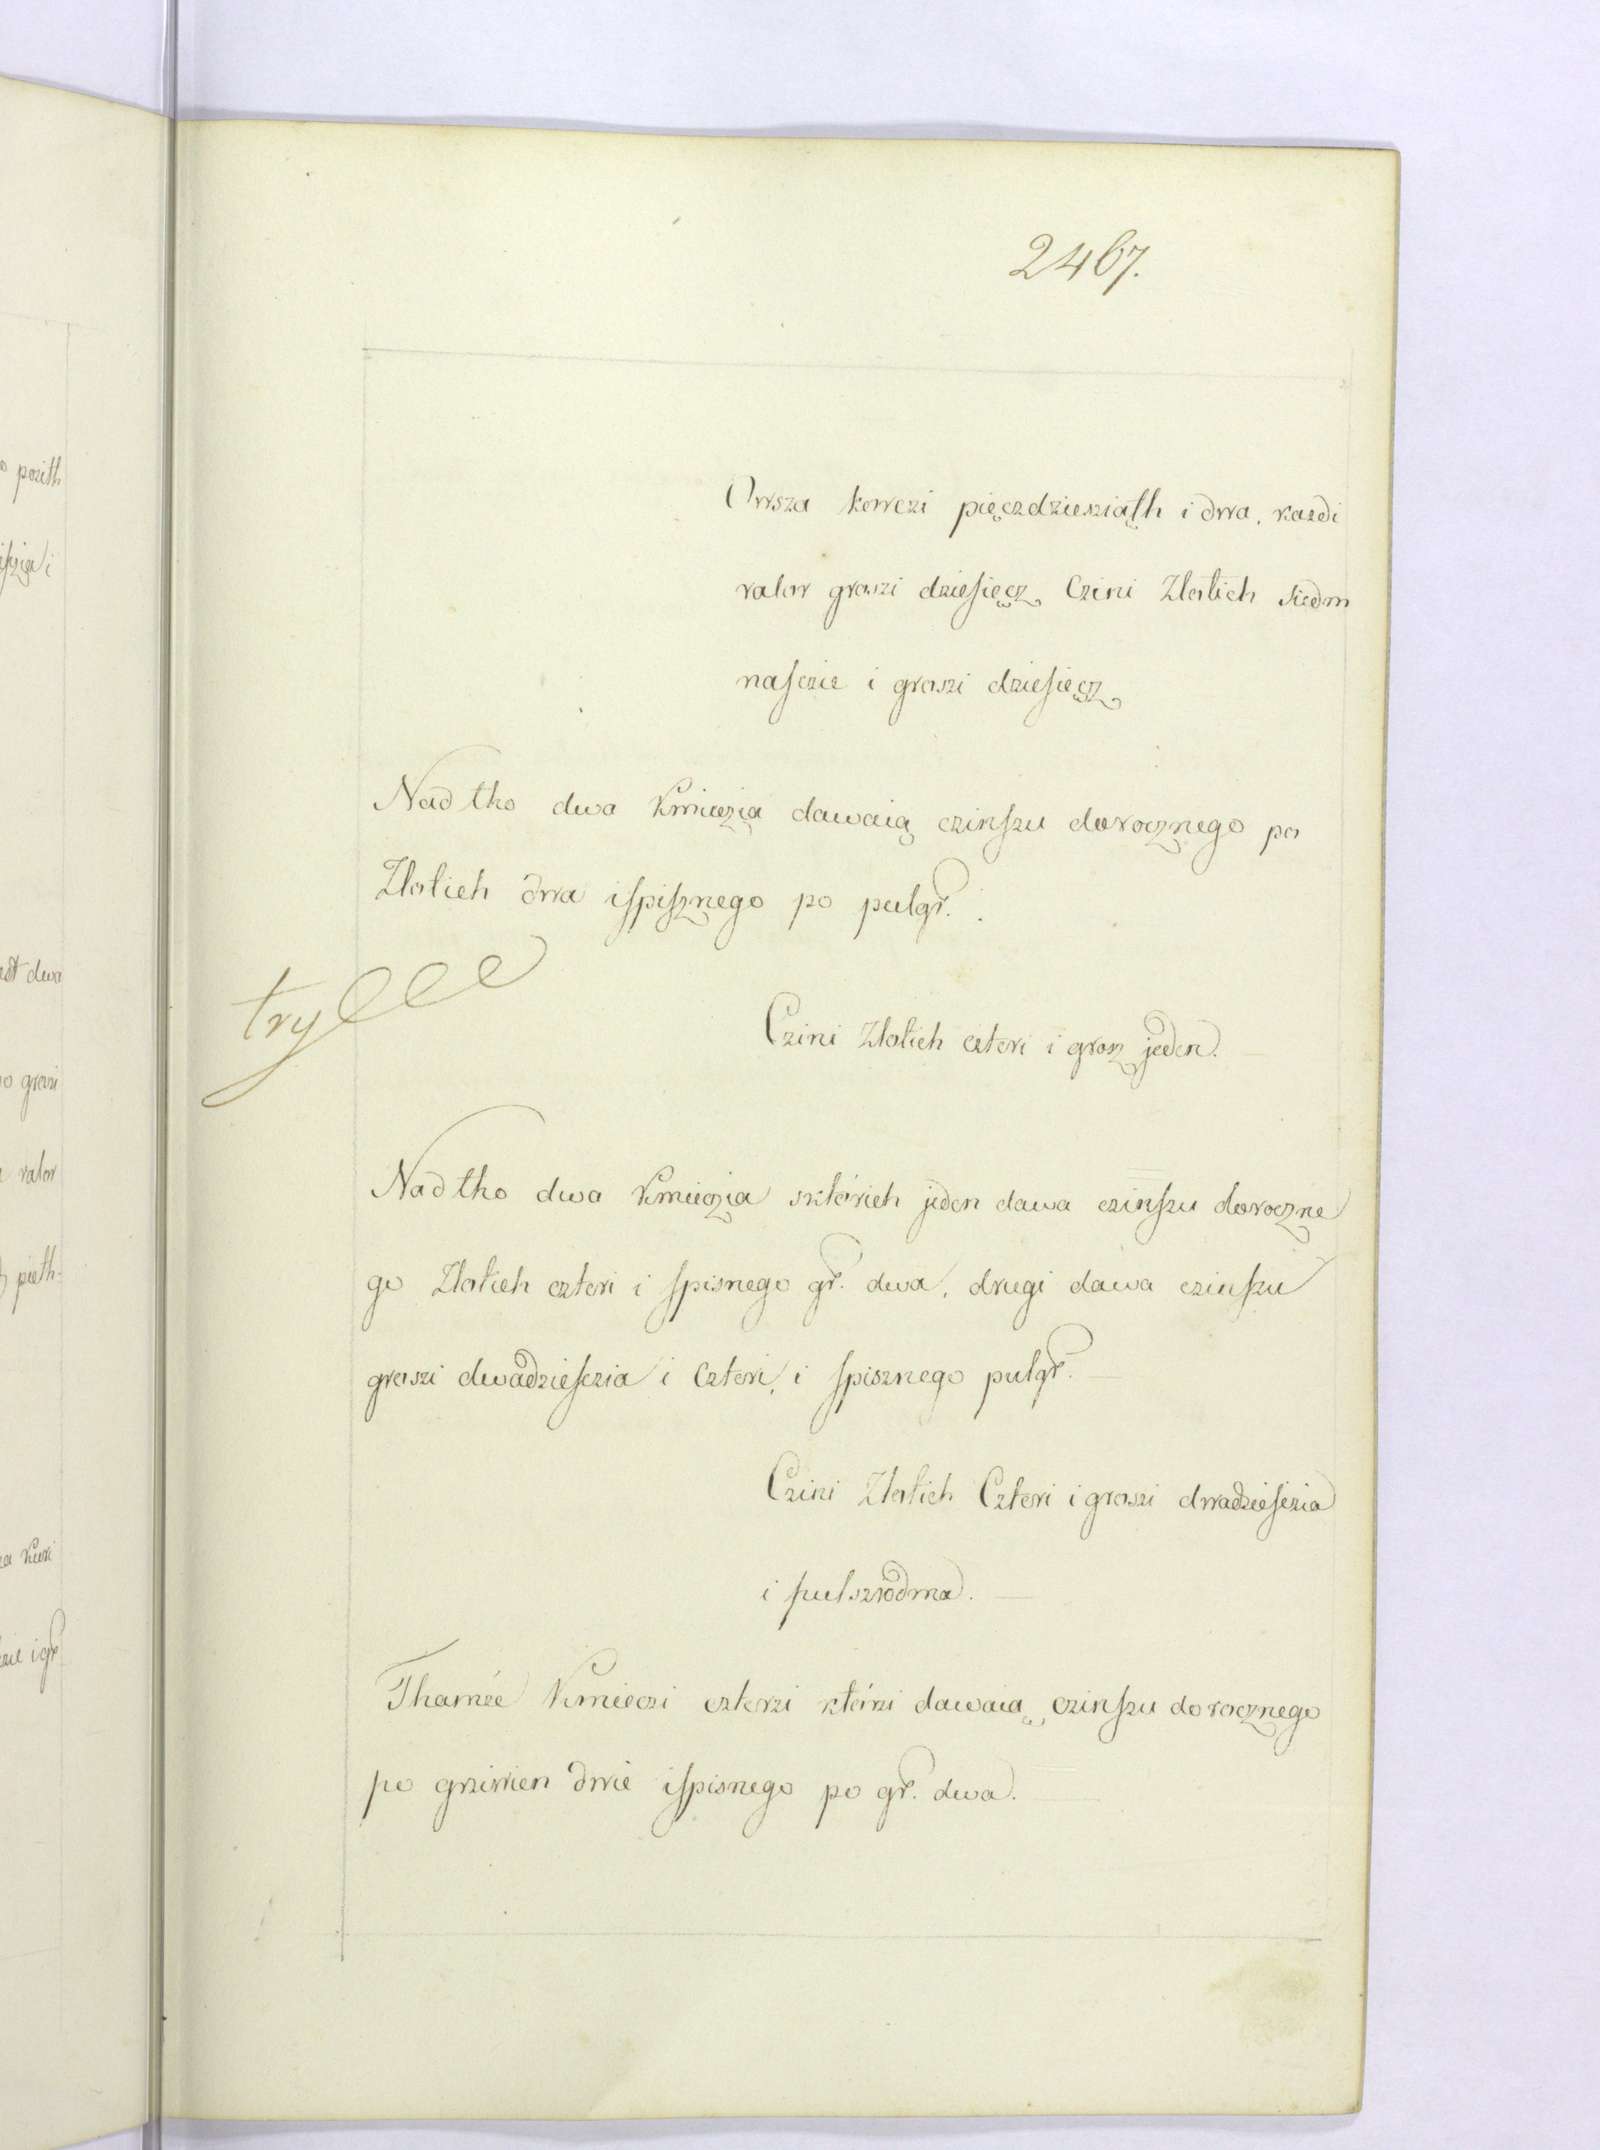 2467.
Owsza korczi pięczdziesziąth i dwa, każdi
valor groszi dziesięcz, Czini Złotich siedm
nasczie i groszi dziesięcz
Nadtko dwa Kmieczia dawaią czinszu dorocznego po
Złotich dwa ispisznego po pułgr.
try
Czini Złotich czteri i grosz jeden.
Nadtko dwa Kmieczia sktórich jeden dawa czinszu doroczne
go Złotich czteri i spisnego gr. dwa, drugi dawa czinszu
groszi dwadziesczia i Czteri, i spisznego pułgr.
Czini Złotich Czteri i groszi dwadziesczia
i pułszodma.
Thamże Kmieczi czterzi którzi dawaią czinszu dorocznego
po grziwien dwie ispisnego po gr. dwa.
pozith
dwa
groszi
valor
pieth
Kuri
i gr